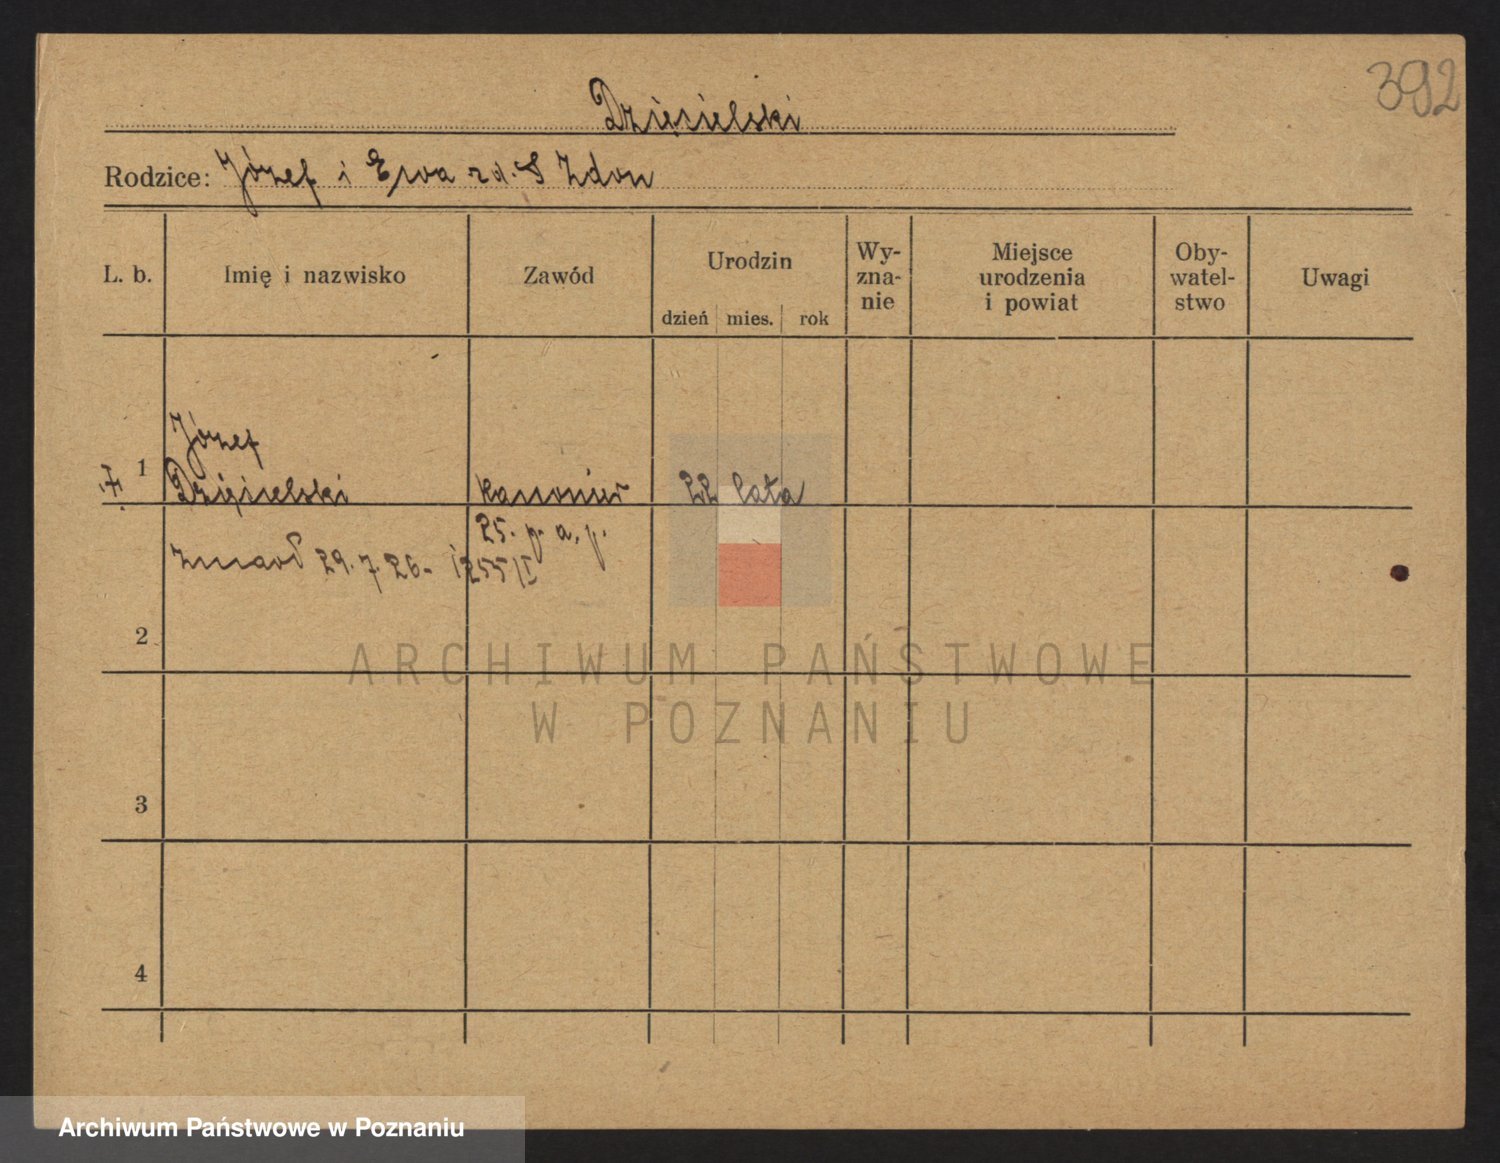 392
Dzięcielski
Rodzice: Józef i Ewa z d. Zdon
L. b. Imię i nazwisko Zawód Urodzin Wy- Miejsce Oby- Uwagi
zna- urodzenia watel-
nie i powiat stwo
dzień mies. rok
Józef
1 Dzięcielski kanonier 22 lata
25. p. a. p.
zmarł 29. 7. 26.
2
ARCHIWUM PAŃSTWOWE
W POZNANIU
3
4
Archiwum Państwowe w Poznaniu